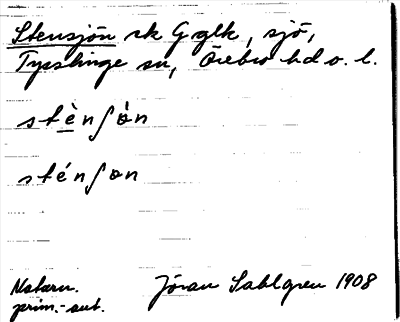 Stensjön rk G glk, sjö,
Tysslinge sn, Örebro hd o. l.
stènʃòn
sténʃon
Naturn.
prim.-sut.
Jöran Sahlgren 1908